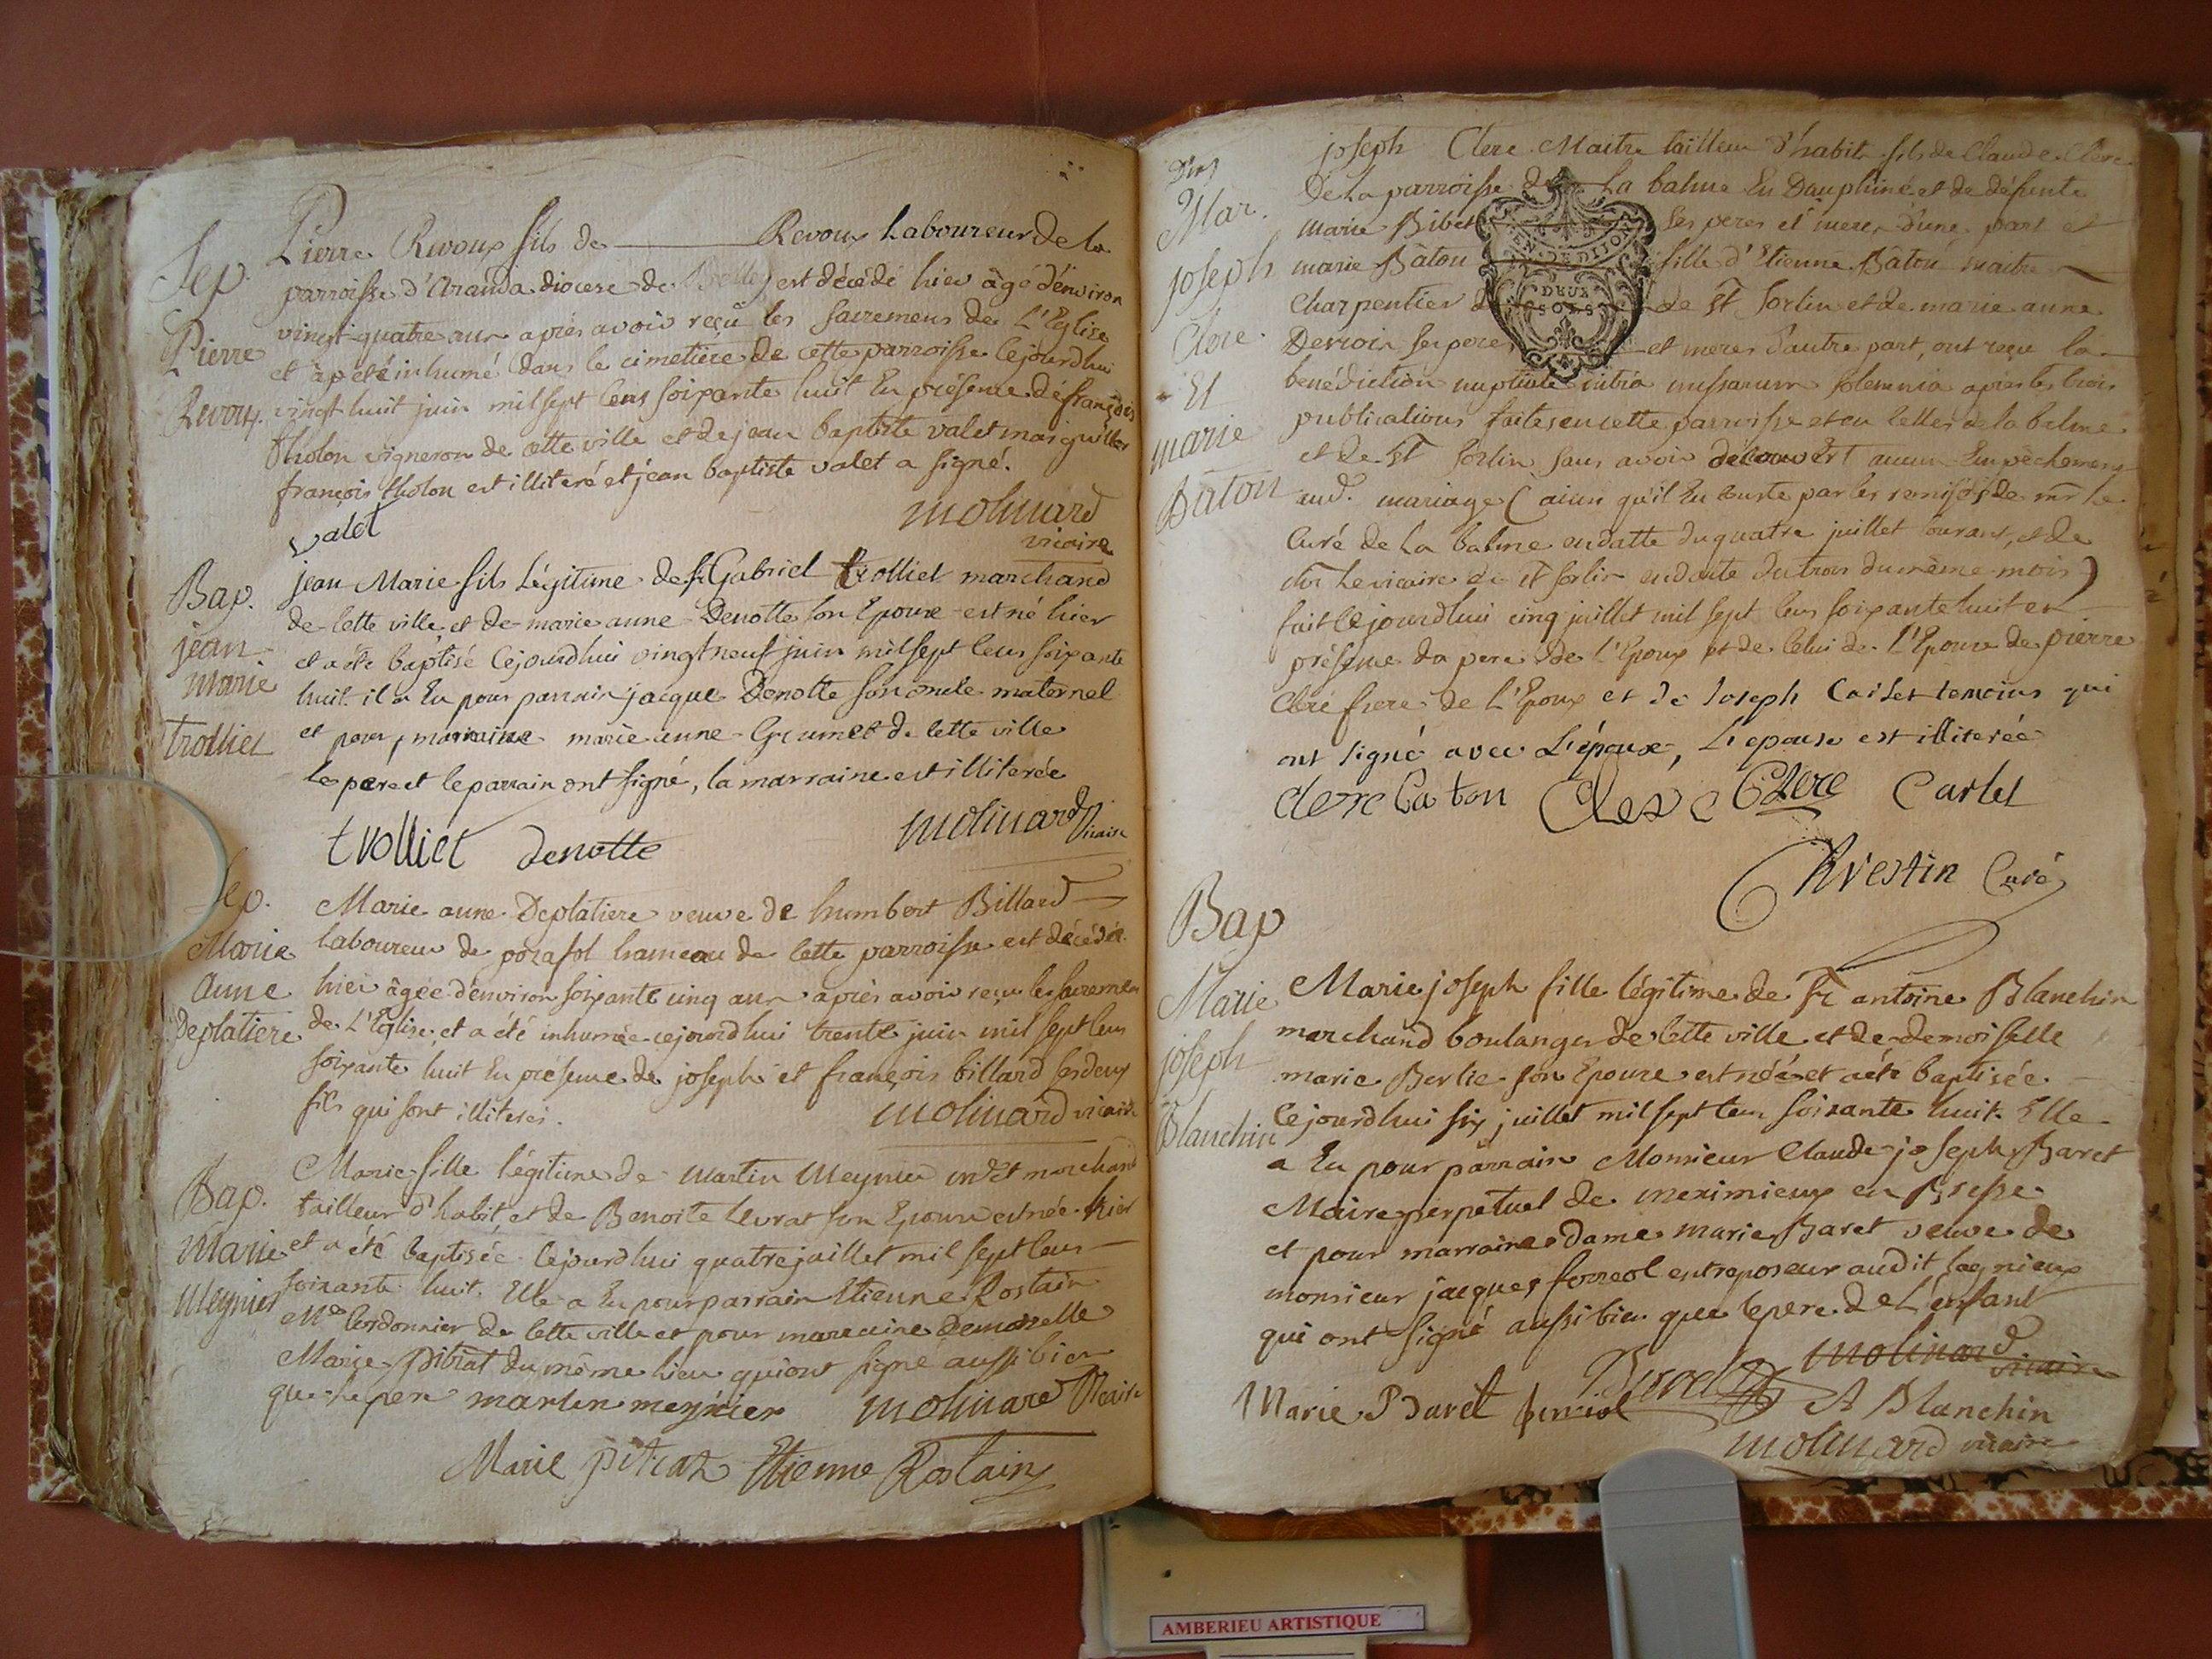 Sep.
Pierre
Revoux.
Pierre Revoux fils de Revoux Laboureur de la
parroisse d'Aranda diocese de Belley est décédé hier âgé d'environ
vingt quatre ans après avoir reçu les sacremens de L'Eglise
et a été inhumé dans le cimetière de cette parroisse cejourdhui
vingt huit juin mil sept cens soixante huit En présence de françois
tholon vigneron de cette ville et de jean baptiste valet marguillier
françois tholon est illiteré et jean baptiste valet a signé.
valet molinard
vicaire
Bap.
jean
marie
trolliet
jean Marie fils Légitime de sr Gabriel trolliet marchand
de cette ville et de marie anne Denotte son Epouse est né hier
et a été baptisé cejourdhui vingt neuf juin mil sept cens soixante
huit. il a Eu pour parrain jacque Denotte son oncle maternel
et pour marraine marie anne Grumet de cette ville
le pere et le parrain ont signé, la marraine est illiterée
trolliet denotte molinard vicaire
Sep.
Marie
Anne
Deplatiere
Marie anne Deplatiere veuve de humbert Billard
laboureur de hameau de cette parroisse est décédée
hier âgée d'environ soixante cinq ans après avoir reçu les sacremens
de L'Eglise, et a été inhumée cejourdhui trente juin mil sept cens
soixante huit En présence de joseph et françois billard ses deux
fils qui sont illiterés.
molinard vicaire
Bap.
Marie
Meynier
Marie fille légitime de martin Meynier marchand
tailleur d'habit, et de Benoite Levrat son Epouse est née hier
et a été baptisée cejourdhui quatre juillet mil sept cens
soixante huit. Elle a Eu pour parrain Etienne Rostain
Me Cordonnier de cette ville et pour marraine Demoiselle
Marie Pitrat du même lieu qui ont signé aussi bien
que le pere marten meynier molinard vicaire
Marie pitrat Etienne Rostain
Mar.
joseph
Clere
Et
marie
Baton
joseph Clere Maitre tailleur d'habit fils de Claude Clere
De la parroisse de La balme En Dauphiné et de défunte
marie Bibet ses peres et mere, d'une part et
marie Bâton fille d'Etienne Bâton maitre
GEN. DE DIJON
DEUX
SOLS
Charpentier de St Sorlin et de marie anne
Derroin ses pere et mere d'autre part, ont reçu la
benédiction nuptiale intra missarum solemnia après les trois
publications faites en cette parroisse et en celles de la balme
et de St Sorlin sans avoir découvert aucun Empêchement
aud. mariage (ainsi qu'il En conste par les remises de mr le
Curé de La balme en datte du quatre juillet courant, et de
mr Le vicaire de St sorlin en datte du trois du même mois)
fait cejourdhui cinq juillet mil sept cens soixante huit en
présence du pere de L'Epoux et de celui de L'Epouse de pierre
Cleré frere de L'Epoux et de Joseph Carlet temoins qui
ont signé avec L'époux, L'epouse est illiterée
clere baton Clere Clere Carlet
Chrestin Curé
Bap
Marie
joseph
Blanchin
Marie joseph fille légitime de Sr antoine Blanchin
marchand boulanger de cette ville et de demoiselle
marie Berlie son Epouse est née et a été baptisée
cejourdhui six juillet mil sept cens soixante huit. Elle
a Eu pour parrain Monsieur Claude joseph Baret
Maire perpetuel de meximieux en Bresse
et pour marraine dame marie Baret veuve de
monsieur jacques ferreol entreposeur audit lagnieux
qui ont signé aussi bien que le pere de L'enfant
molinard
vicaire
Marie Baret ferreol Baret A Blanchin
molinard vicaire
AMBERIEU ARTISTIQUE